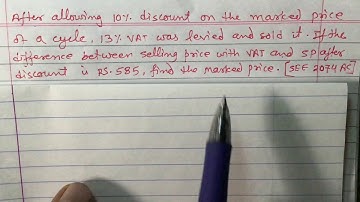 After allowing 10% discount on the marked price
of a cycle, 13% VAT was levied and sold it. If the
difference between selling price with VAT and SP after
discount is RS. 585, find the marked price. [SEE 2074 RE]